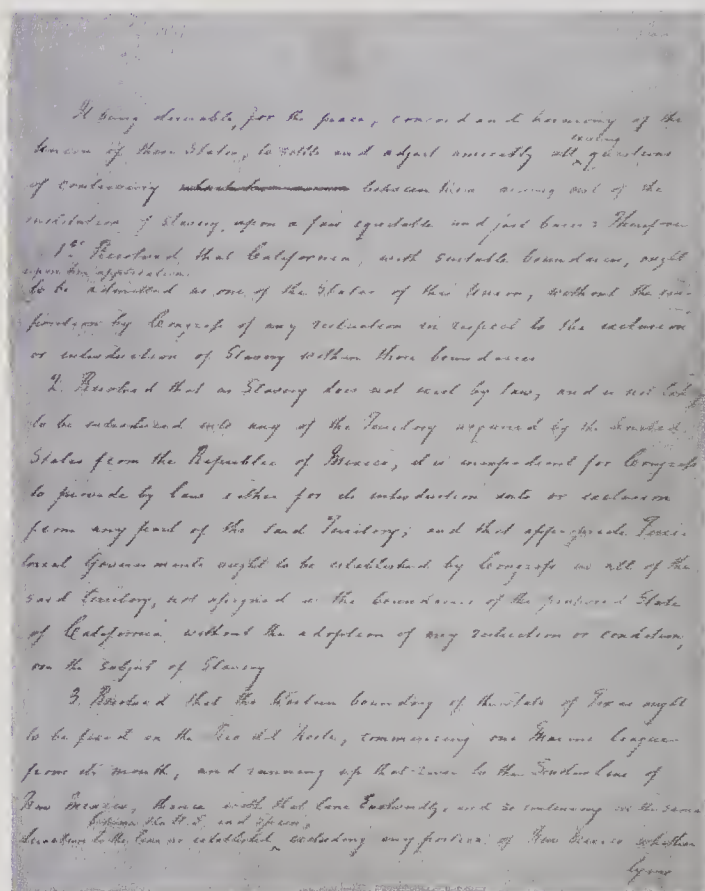 It being desirable, for the peace, concord and harmony of the
Union of these States, to settle and adjust amicably all existing questions
of controversy between them arising out of the
institution of Slavery, upon a fair equitable and just basis: Therefore
1st. Resolved, that California, with suitable boundaries, ought
upon her application
to be admitted as one of the States of this Union, without the im-
position by Congress of any restriction in respect to the exclusion
or introduction of Slavery within those boundaries
2. Resolved that as Slavery does not exist by law, and is not likely
to be introduced into any of the Territory acquired by the United
States from the Republic of Mexico, it is inexpedient for Congress
to provide by law either for its introduction into or exclusion
from any part of the said Territory; and that appropriate Terri-
torial Governments ought to be established by Congress in all of the
said territory, not assigned as the boundaries of the proposed State
of California, without the adoption of any restriction or condition,
on the subject of Slavery
3. Resolved that the Western boundary of the State of Texas ought
to be fixed on the Rio del Norte, commencing one Marine league
from its mouth, and running up that river to the Southern line of
New Mexico, thence with that line Eastwardly, and so continuing in the same
between the U.S. and Spain,
direction to the line as established, excluding any portion of New Mexico whether